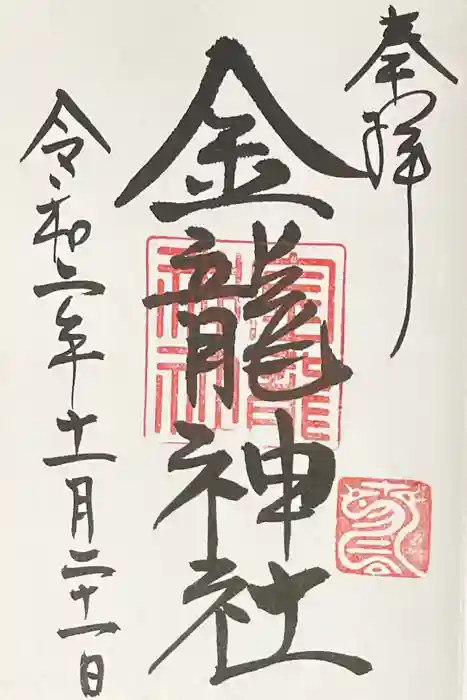 奉拝
金龍神社
金龍
神社
令和二年十一月二十一日